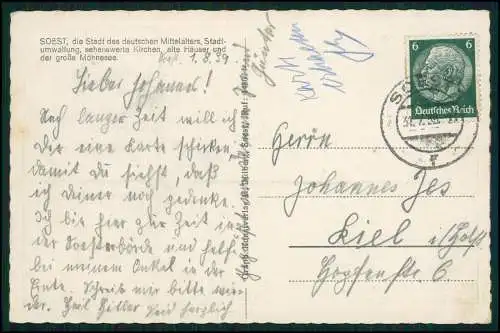 SOEST, die Stadt des deutschen Mittelalters, Stadt-
umwallung, sehenswerte Kirchen, alte Häuser und
der große Möhnesee.
1.8.39.
Lieber Johannes!
Nach langer Zeit will ich
Dir eine Karte schicken
damit Du siehst, daß
ich Deiner noch gedenke.
Ich bin hier zur Zeit in
der Soesterbörde und helfe
bei meinem Onkel in der
Ernte. Schreib mir bitte wie-
der. Heil Hitler und herzlich
Freund
Günter
6 6
Deutsches Reich
Herrn
Johannes Jes
Kiel i/Holst.
Hopfenstr. 6